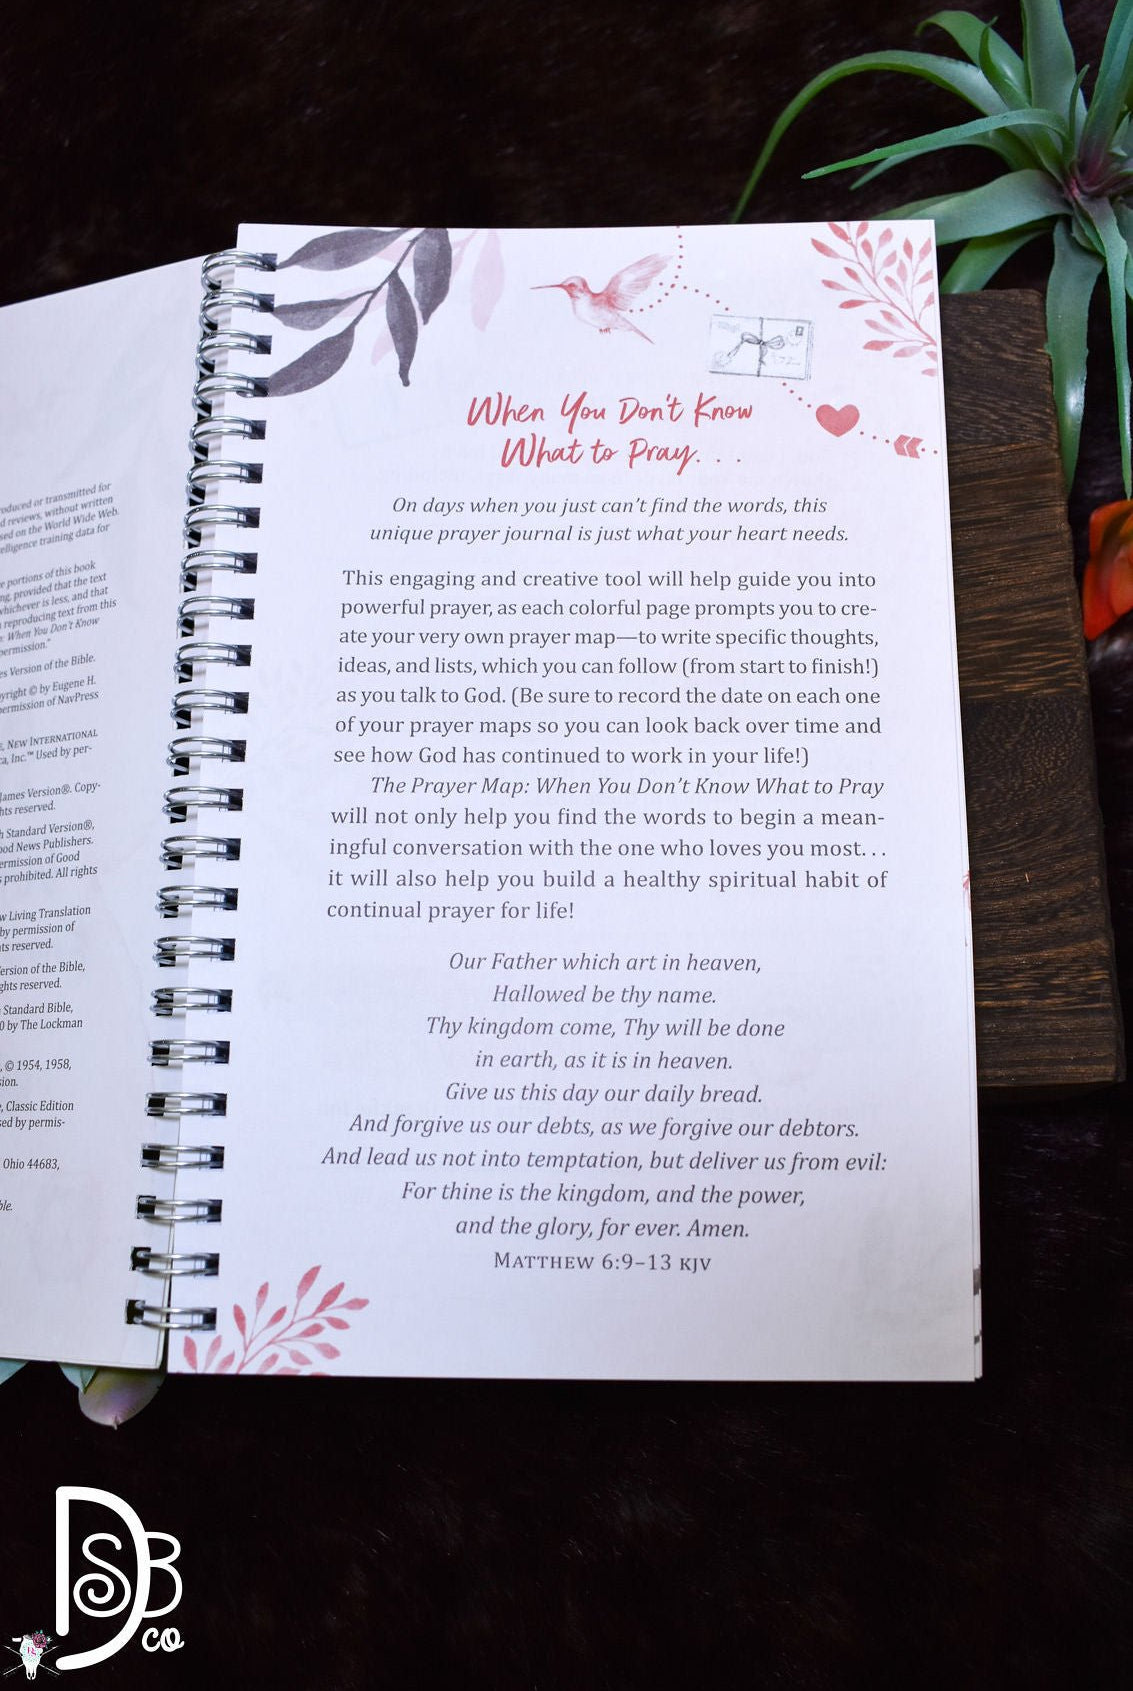 oduced or transmitted for
d reviews, without written
sed on the World Wide Web.
elligence training data for
e portions of this book
ng, provided that the text
whichever is less, and that
n reproducing text from this
: When You Don't Know
permission."
es Version of the Bible.
yright © by Eugene H.
ermission of NavPress
, NEW INTERNATIONAL
ca, Inc.™ Used by per-
James Version®. Copy-
hts reserved.
h Standard Version®,
ood News Publishers.
ermission of Good
s prohibited. All rights
w Living Translation
by permission of
ts reserved.
ersion of the Bible,
ghts reserved.
Standard Bible,
0 by The Lockman
, © 1954, 1958,
sion.
, Classic Edition
sed by permis-
Ohio 44683,
ble.
When You Don't Know
What to Pray. . .
On days when you just can't find the words, this
unique prayer journal is just what your heart needs.
This engaging and creative tool will help guide you into
powerful prayer, as each colorful page prompts you to cre-
ate your very own prayer map—to write specific thoughts,
ideas, and lists, which you can follow (from start to finish!)
as you talk to God. (Be sure to record the date on each one
of your prayer maps so you can look back over time and
see how God has continued to work in your life!)
The Prayer Map: When You Don't Know What to Pray
will not only help you find the words to begin a mean-
ingful conversation with the one who loves you most. . .
it will also help you build a healthy spiritual habit of
continual prayer for life!
Our Father which art in heaven,
Hallowed be thy name.
Thy kingdom come, Thy will be done
in earth, as it is in heaven.
Give us this day our daily bread.
And forgive us our debts, as we forgive our debtors.
And lead us not into temptation, but deliver us from evil:
For thine is the kingdom, and the power,
and the glory, for ever. Amen.
MATTHEW 6:9–13 KJV
DSB
co